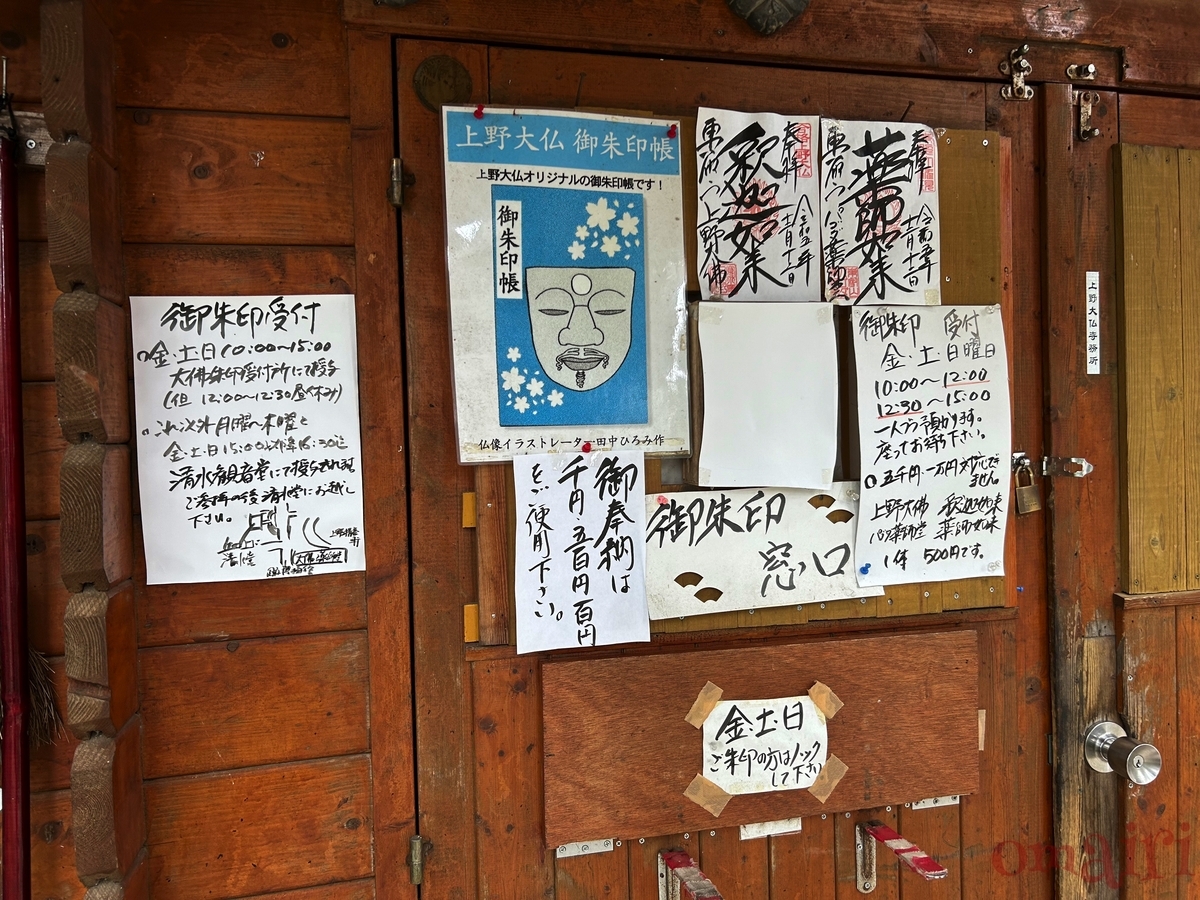 御朱印受付
金・土・日 10:00〜15:00
大佛朱印受付所にて授与
(但 12:00〜12:30昼休み)
これ以外月曜〜木曜と
金・土・日 15:00以降16:30迄
清水観音堂にて授与され
ご参拝の後清水堂にお越し
下さい。
上野大仏 御朱印帳
上野大仏オリジナルの御朱印帳です!
御朱印帳
仏像イラストレーター田中ひろみ作
奉拝
釈迦如来
東叡山 上野大佛
奉拝
薬師如来
令和五年
十一月十一日
御朱印 受付
金・土・日曜日
10:00〜12:00
12:30〜15:00
一人ずつ預かります。
座ってお待ち下さい。
五千円一万円対応できません。
上野大佛 釈迦如来
パゴダ薬師堂 薬師如来
1体 500円です。
御奉納は
千円 五百円 百円
をご使用下さい。
御朱印
窓口
金・土・日
ご朱印の方はノック
して下さい
上野大仏寺務所
omairi